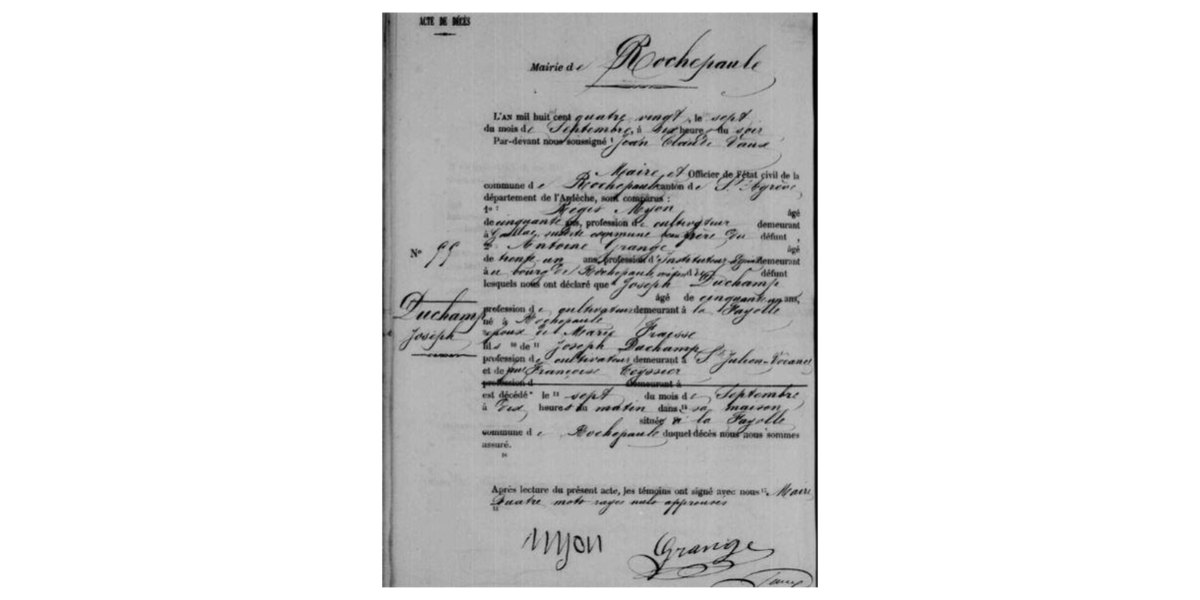 ACTE DE DÉCÈS
Mairie de Rochepaule
L'AN mil huit cent quatre vingt, le sept
du mois de Septembre, à six heure du soir
Par-devant nous soussigné Jean Claude Vaux
Maire et Officier de l'état civil de la
commune de Rochepaule canton de St Agrève
département de l'Ardèche, sont comparus :
1° Régis Myon âgé
de cinquante ans, profession de cultivateur demeurant
à commune père du défunt
2° Antoine Grange âgé
de trente un ans, profession d'Instituteur demeurant
au bourg de Rochepaule défunt
lesquels nous ont déclaré que Joseph Duchamp
âgé de cinquante un ans,
profession de cultivateur demeurant à la Fayolle
né à Rochepaule
époux de Marie Fraisse
fils de Joseph Duchamp
profession de cultivateur demeurant à St Julien-Vocance
et de Françoise Teyssier
profession d demeurant à
est décédé le sept du mois de Septembre
à dix heures du matin dans sa maison
située à la Fayolle
commune de Rochepaule duquel décès nous nous sommes
assuré.
Après lecture du présent acte, les témoins ont signé avec nous Maire
Quatre mots rayés nuls approuvés
N° 55
Duchamp
Joseph
Myon
Grange
Vaux